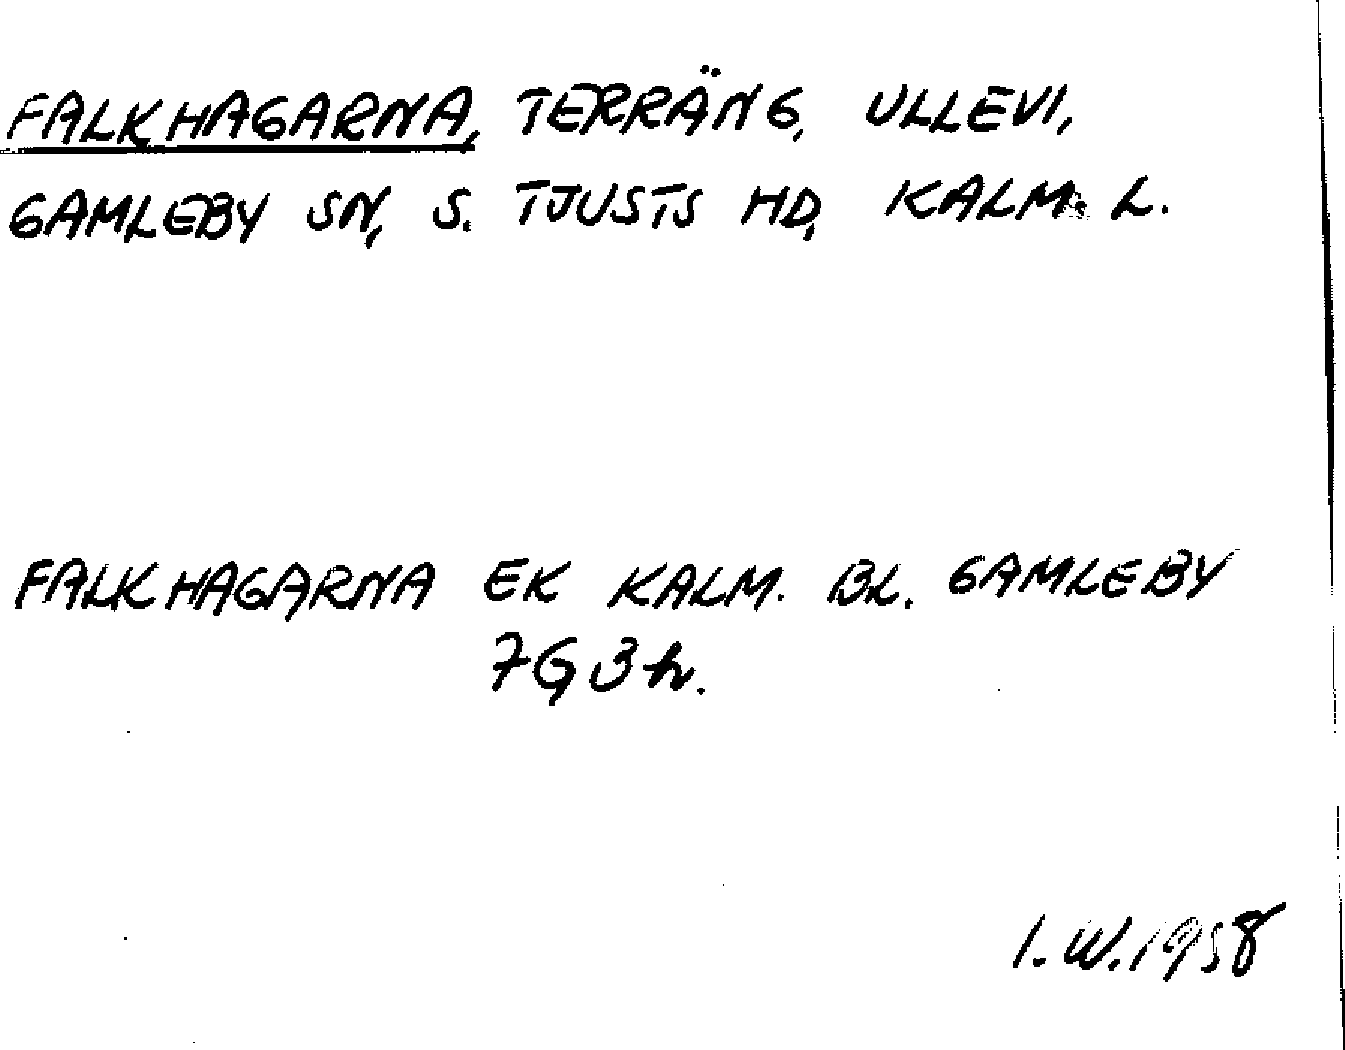 FALKHAGARNA, TERRÄNG, ULLEVI,
GAMLEBY SN, S. TJUSTS HD, KALM. L.
FALKHAGARNA EK KALM. BL. GAMLEBY
7G3h.
I.W.1958